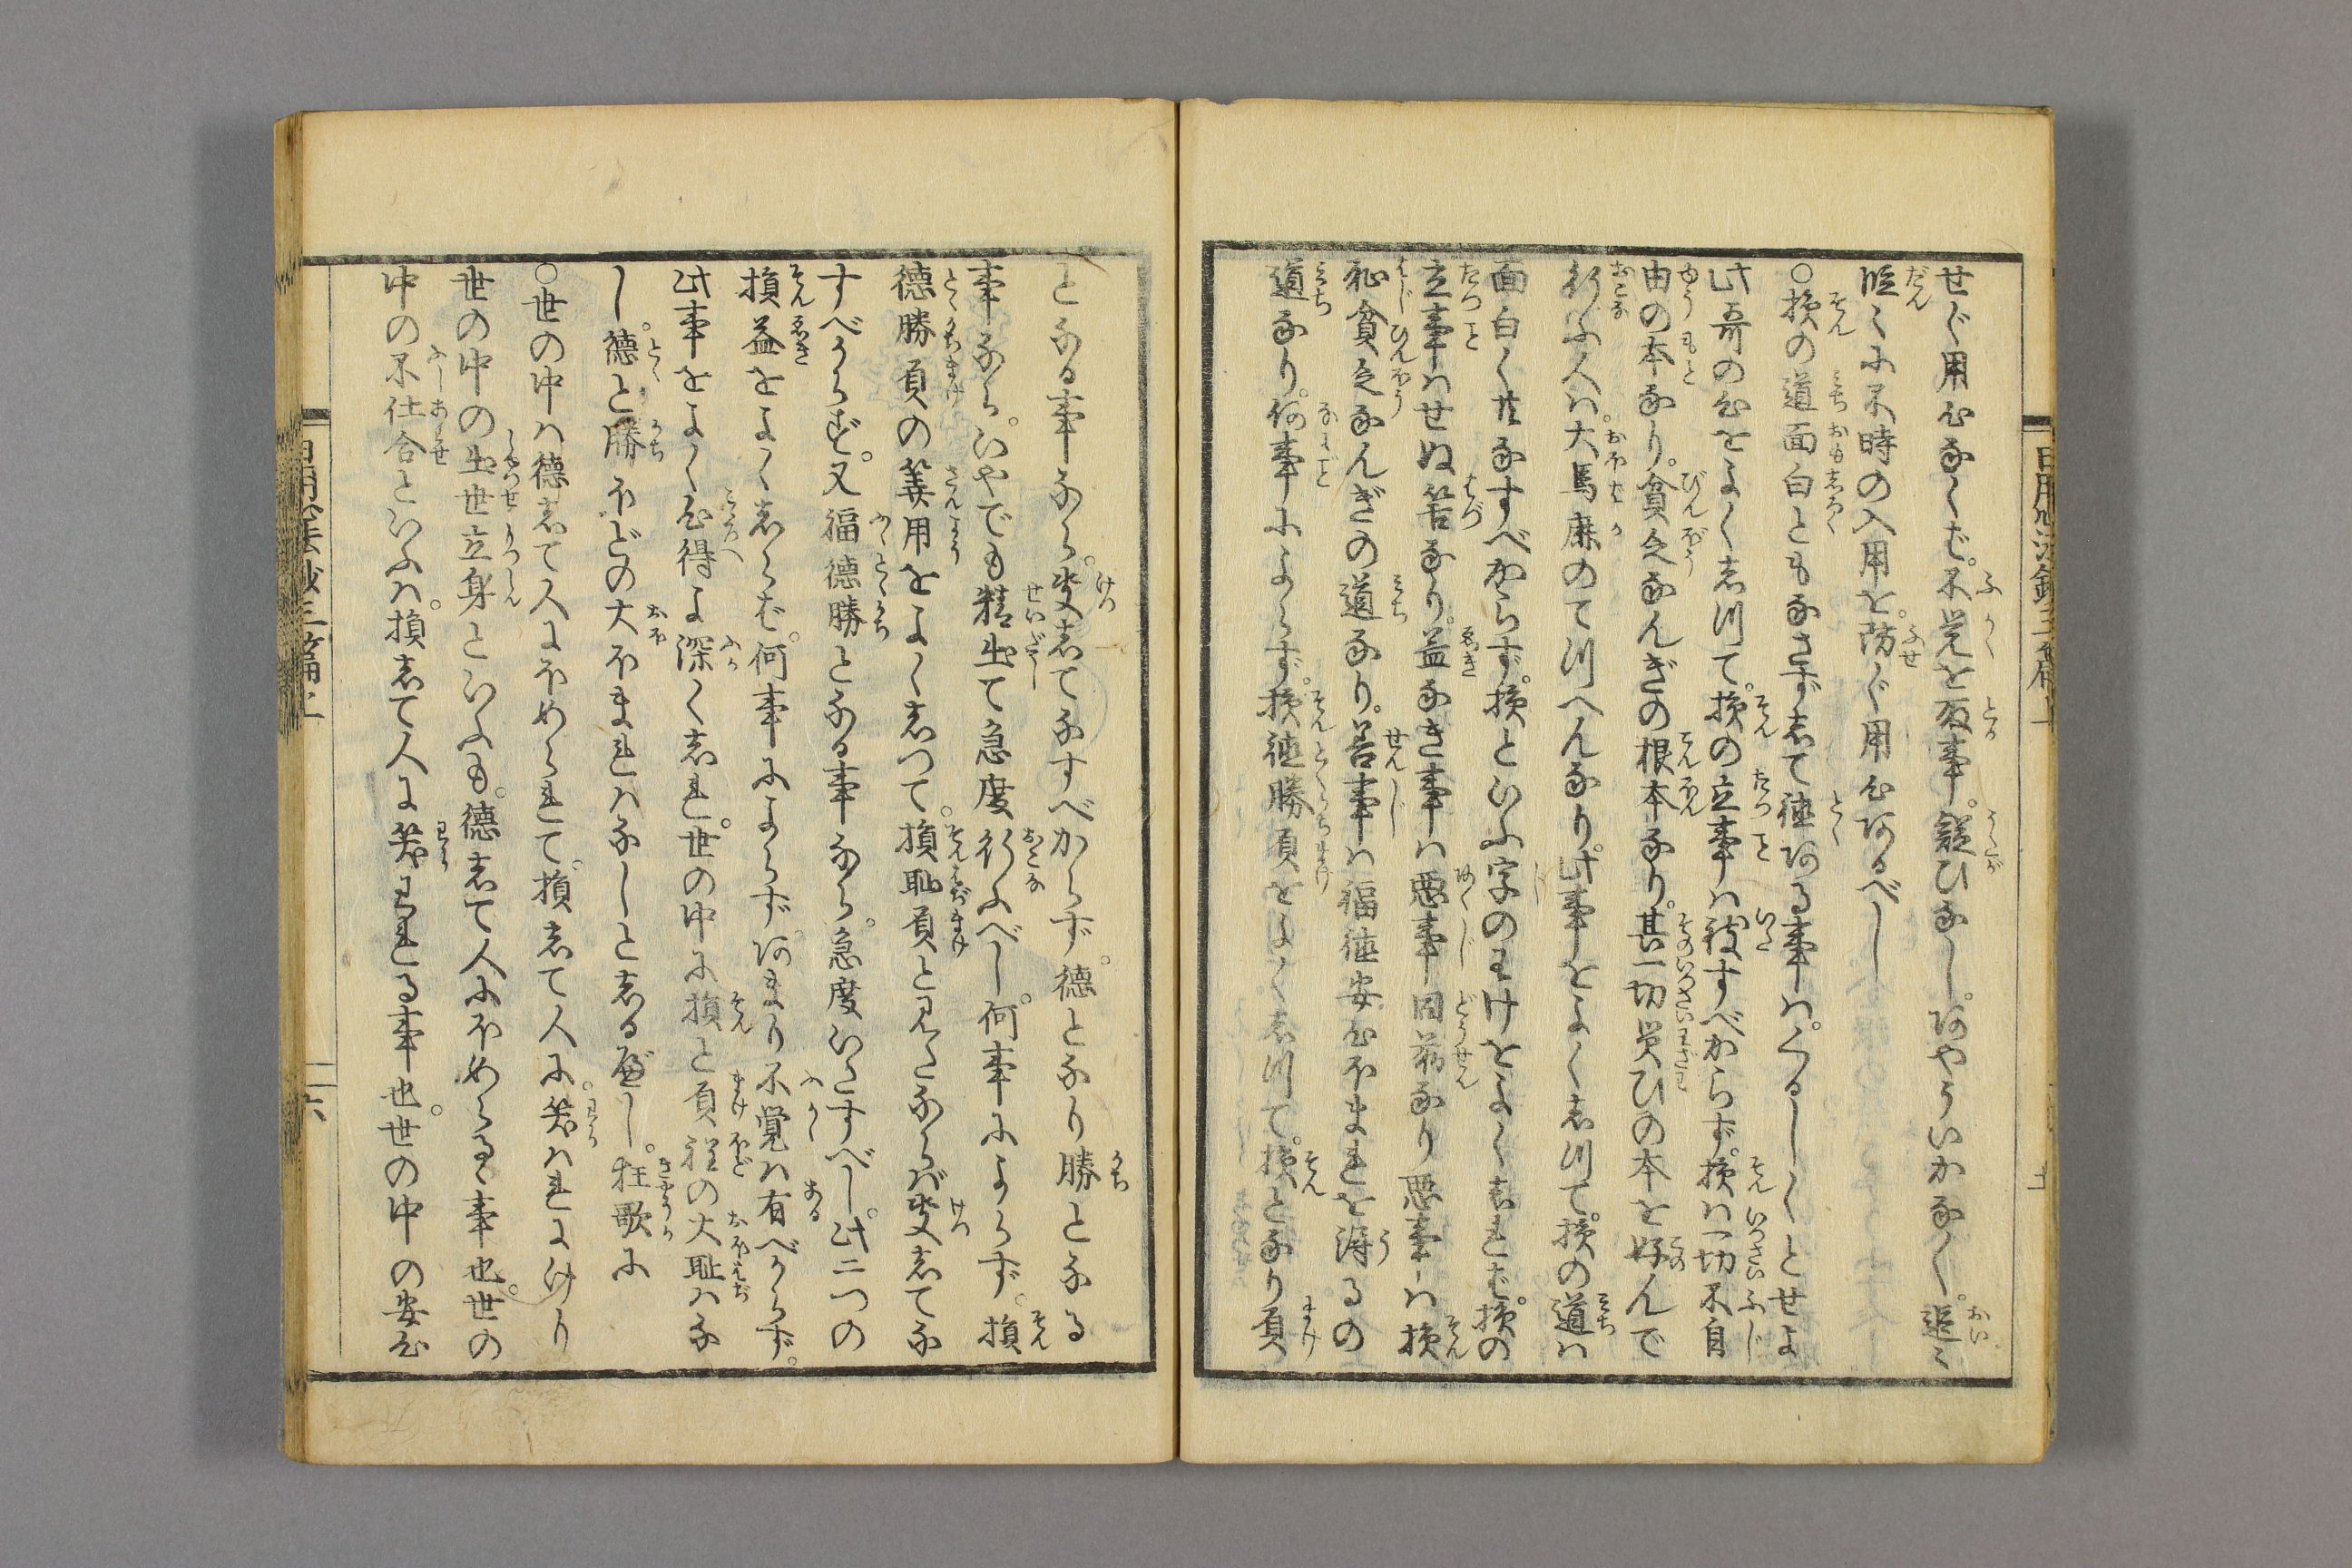 せぐ用心なくば。不覚を取事。疑ひなし。何やういかなく。追々
段々に不時の入用を。防ぐ用心何るべし
○損の道面白ともなさずして徳何る事ハ。くるしくとせよ
此哥の心をよくしつて。損の立事ハ致すべからず。損ハ一切不自
由の本なり。貧乏なんぎの根本なり。其一切災ひの本を好んで
行ふ人ハ。大馬鹿のてつへんなり。此事をよくしつて。損の道ハ
面白く共なすべからず。損といふ字のわけをよくしれば。損の
立事ハせぬ筈なり。益なき事ハ悪事同前なり悪事ハ損
恥貧乏なんぎの道なり。善事ハ福徳安心ほまれを得るの
道なり。何事によらず。損徳勝負をよくしつて。損となり負
となる事なら。決してなすべからず。徳となり勝となる
事なら。いやでも精出て急度行ふべし。何事によらず。損
徳勝負の算用をよくしつて。損恥負と見たならば。決してな
すべからず。又福徳勝となる事なら。急度いたすべし。此二つの
損益をよくしらば。何事によらず。あまり不覚ハ有べからず。
此事をよく心得よ深くしれ。世の中に損と負程の大恥ハな
し。徳と勝ほどの大ほまれハなしとしるべし。狂歌に
○世の中ハ徳して人にほめられて。損して人に。笑ハれにけり
世の中の出世立身といふも。徳して人にほめらるゝ事也。世の
中の不仕合といふハ。損して人に笑ハれる事也。世の中の安心
二六